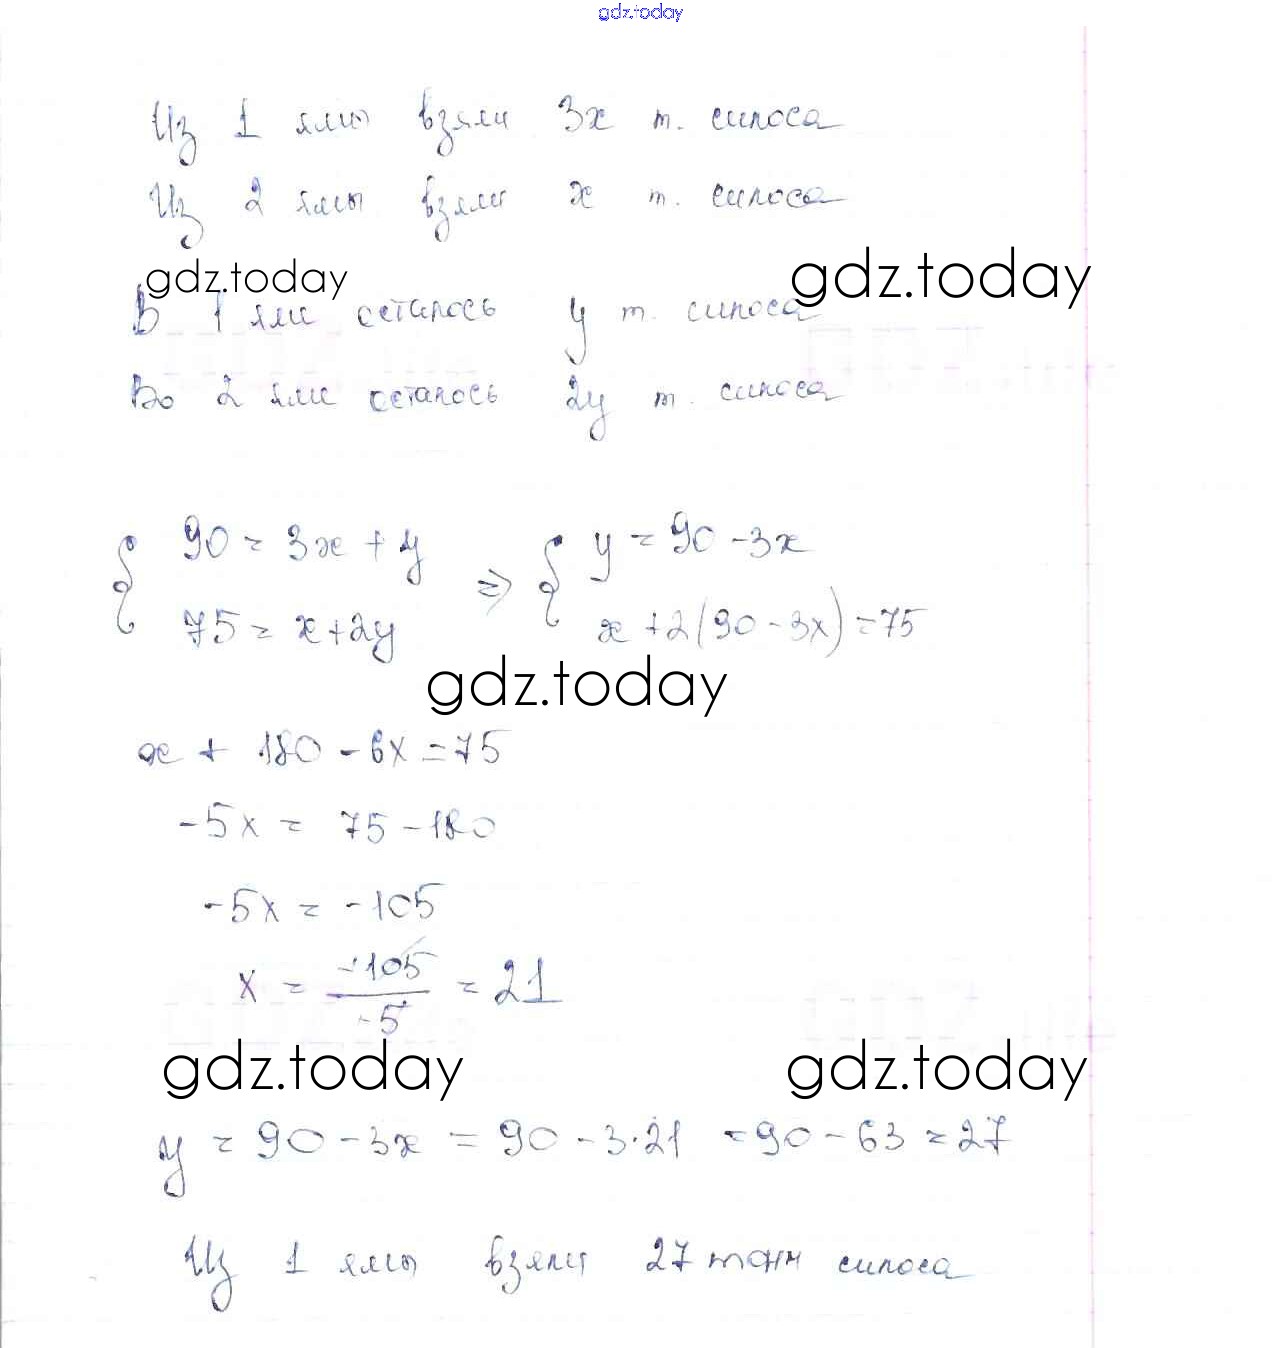 gdz.today
Из 1 ямы взяли 3x т. силоса
Из 2 ямы взяли x т. силоса
gdz.today gdz.today
В 1 яме осталось y т. силоса
Во 2 яме осталось 2y т. силоса
{ 90 = 3x + y => { y = 90 - 3x
75 = x + 2y x + 2(90 - 3x) = 75
gdz.today
x + 180 - 6x = 75
-5x = 75 - 180
-5x = -105
x = -105/-5 = 21
gdz.today gdz.today
y = 90 - 3x = 90 - 3·21 = 90 - 63 = 27
Из 1 ямы взяли 27 тонн силоса